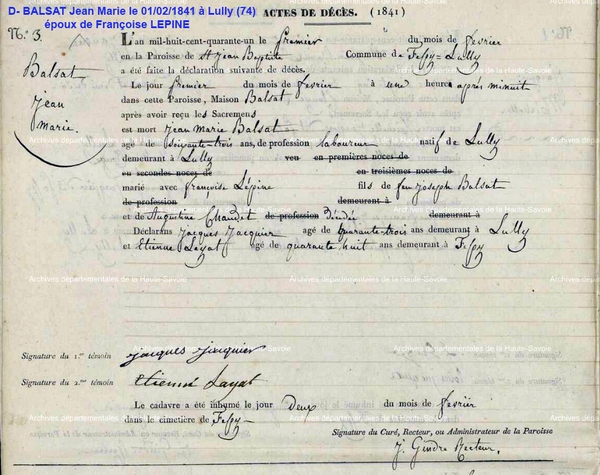 D- BALSAT Jean Marie le 01/02/1841 à Lully (74)
époux de Françoise LEPINE
ACTES DE DÉCÈS. (1841)
N.° 3
Balsat
Jean
Marie.
L'an mil-huit-cent-quarante-un le premier du mois de février
en la Paroisse de St Jean Baptiste Commune de Fessy=Lully
a été faite la déclaration suivante de décès.
Le jour premier du mois de février à une heure après minuit
dans cette Paroisse, Maison Balsat,
après avoir reçu les Sacremens
est mort Jean Marie Balsat
agé de soixante-trois ans, de profession laboureur natif de Lully
demeurant à Lully veu en premières noces de
en secondes noces de en troisièmes noces de
marié avec françoise Lépine fils de feu Joseph Balsat
de profession demeurant à
et de Augustine Chaudet de profession décédée demeurant à
Déclarans Jacques Jacquier agé de quarante-trois ans demeurant à Lully
et Etienne Layat agé de quarante huit ans demeurant à Fessy
Archives départementales de la Haute-Savoie
Signature du 1.er témoin jacques jacquier
Signature du 2.me témoin Etienne Layat
Le cadavre a été inhumé le jour deux du mois de février
dans le cimetière de Fessy
Signature du Curé, Recteur, ou Administrateur de la Paroisse
J. Gindre Recteur.